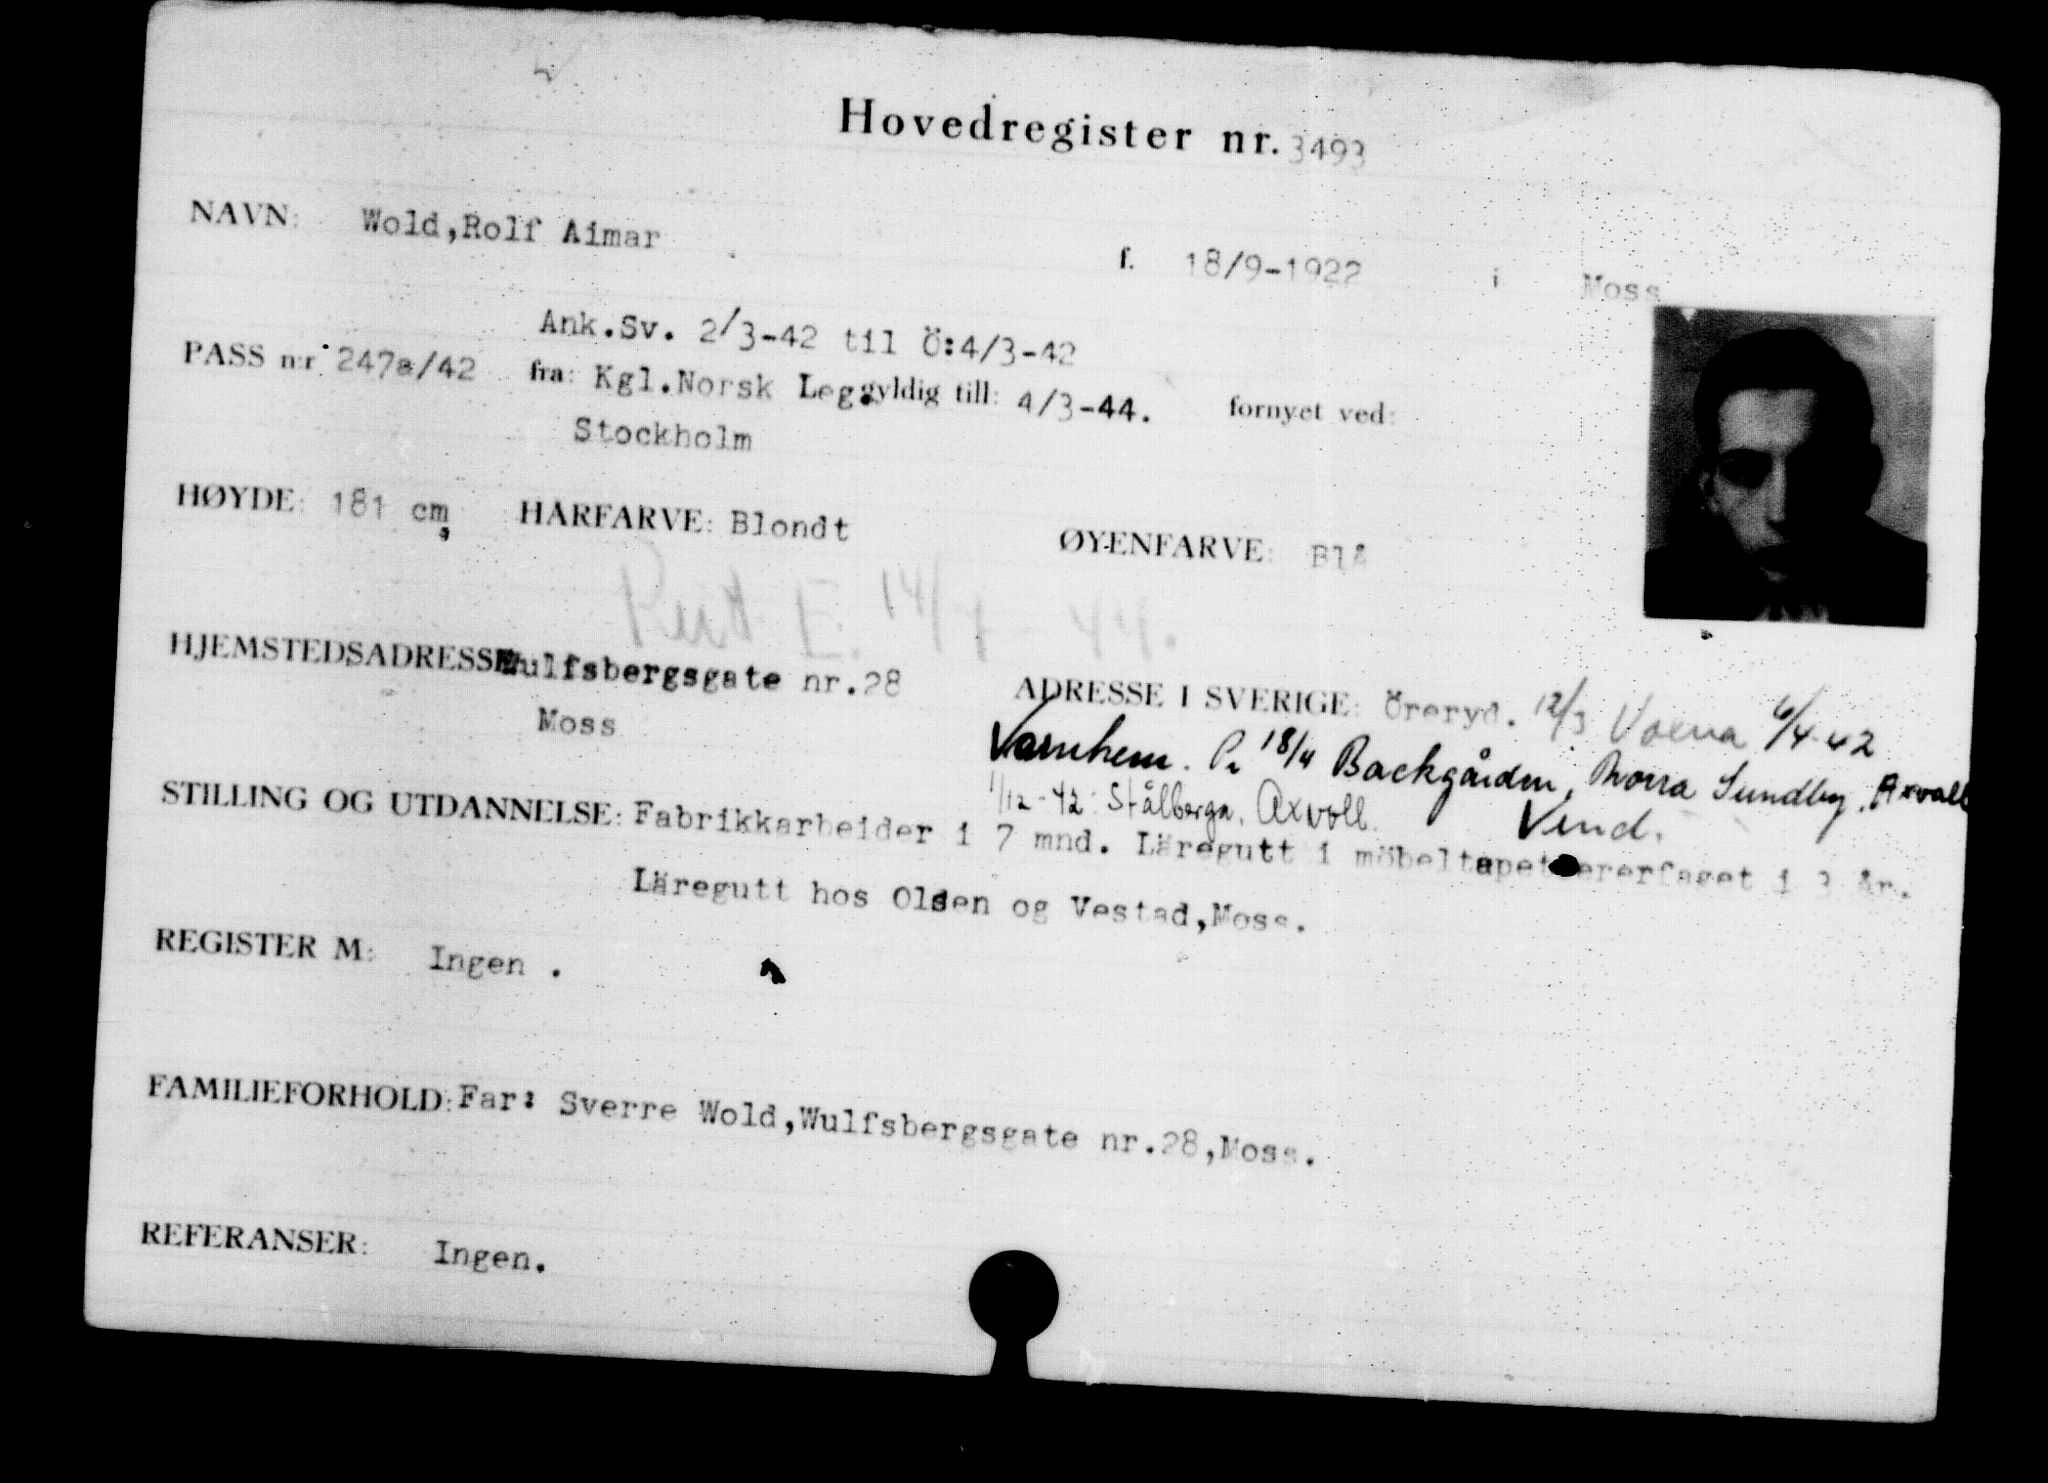 Hovedregister nr. 3493
NAVN: Wold,Rolf Aimar f. 18/9-1922 i Moss
Ank.Sv. 2/3-42 til Ö:4/3-42
PASS n:r 247a/42 fra: Kgl.Norsk Leg. gyldig till: 4/3-44. fornyet ved:
Stockholm
HØYDE: 181 cm, HÅRFARVE: Blondt ØYENFARVE: Blå
E. 14/ - 44.
HJEMSTEDSADRESSE: Wulfsbergsgate nr.28 ADRESSE I SVERIGE: Öreryd. 12/3 Voxna 6/4-42
Moss
Varnhem. 18/4 Backgården, Norra Lundby. Axvall
1/12-42: Stålberga, Axvoll. Vind.
STILLING OG UTDANNELSE: Fabrikkarbeider i 7 mnd. Läregutt i möbeltapetsererfaget i 3 år.
Läregutt hos Olsen og Vestad,Moss.
REGISTER M: Ingen .
FAMILIEFORHOLD: Far: Sverre Wold,Wulfsbergsgate nr.28,Moss.
REFERANSER: Ingen.